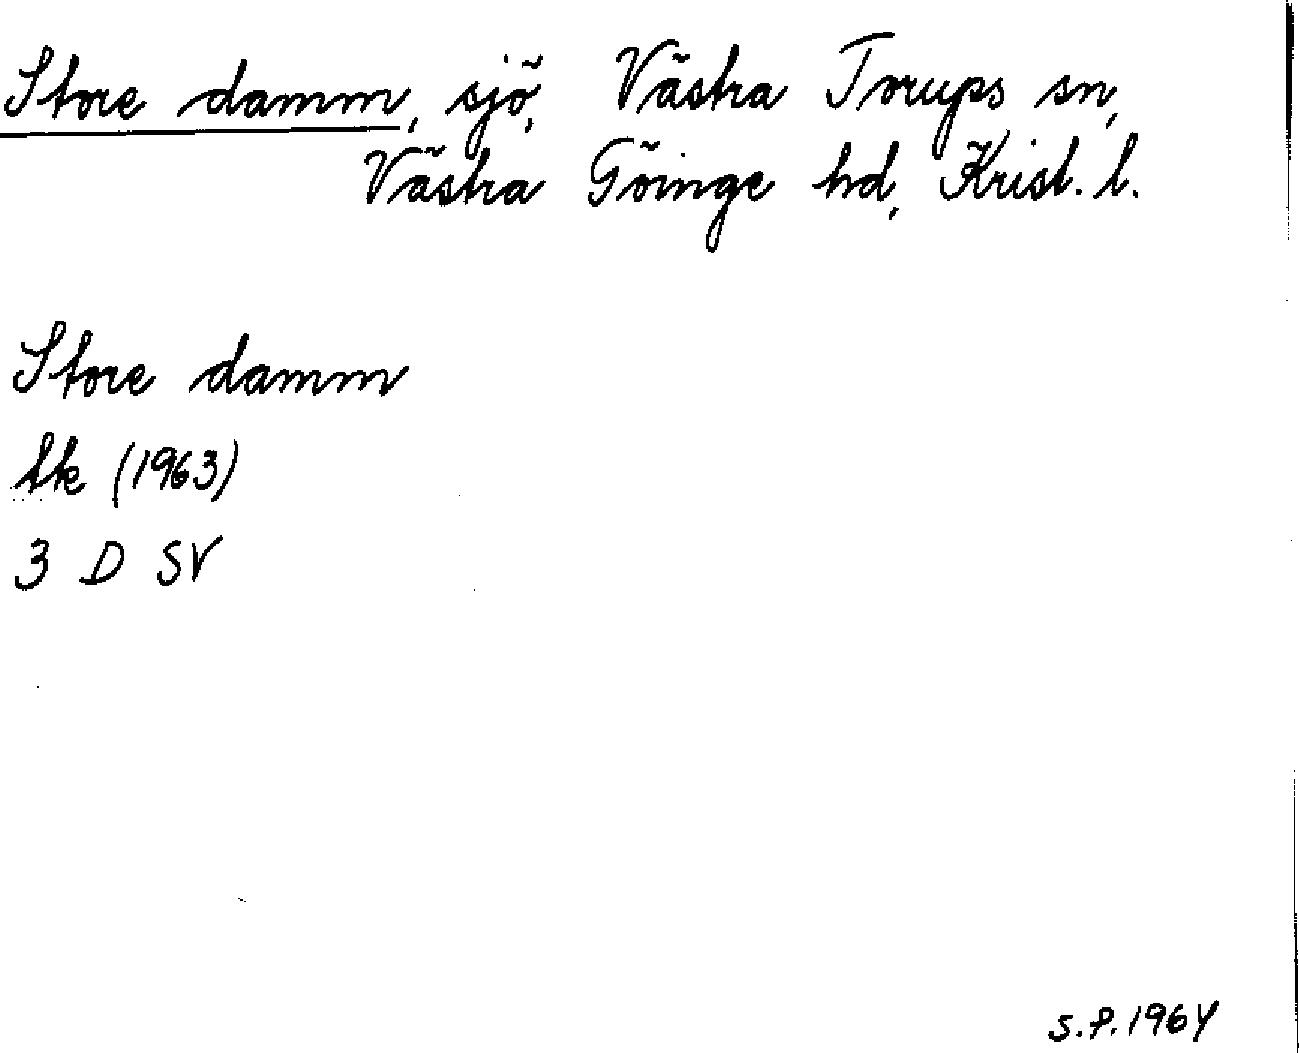 Store damm, sjö, Västra Torups sn,
Västra Göinge hd, Krist. l.
Store damm
tk (1963)
3 D SV
S.P. 1964